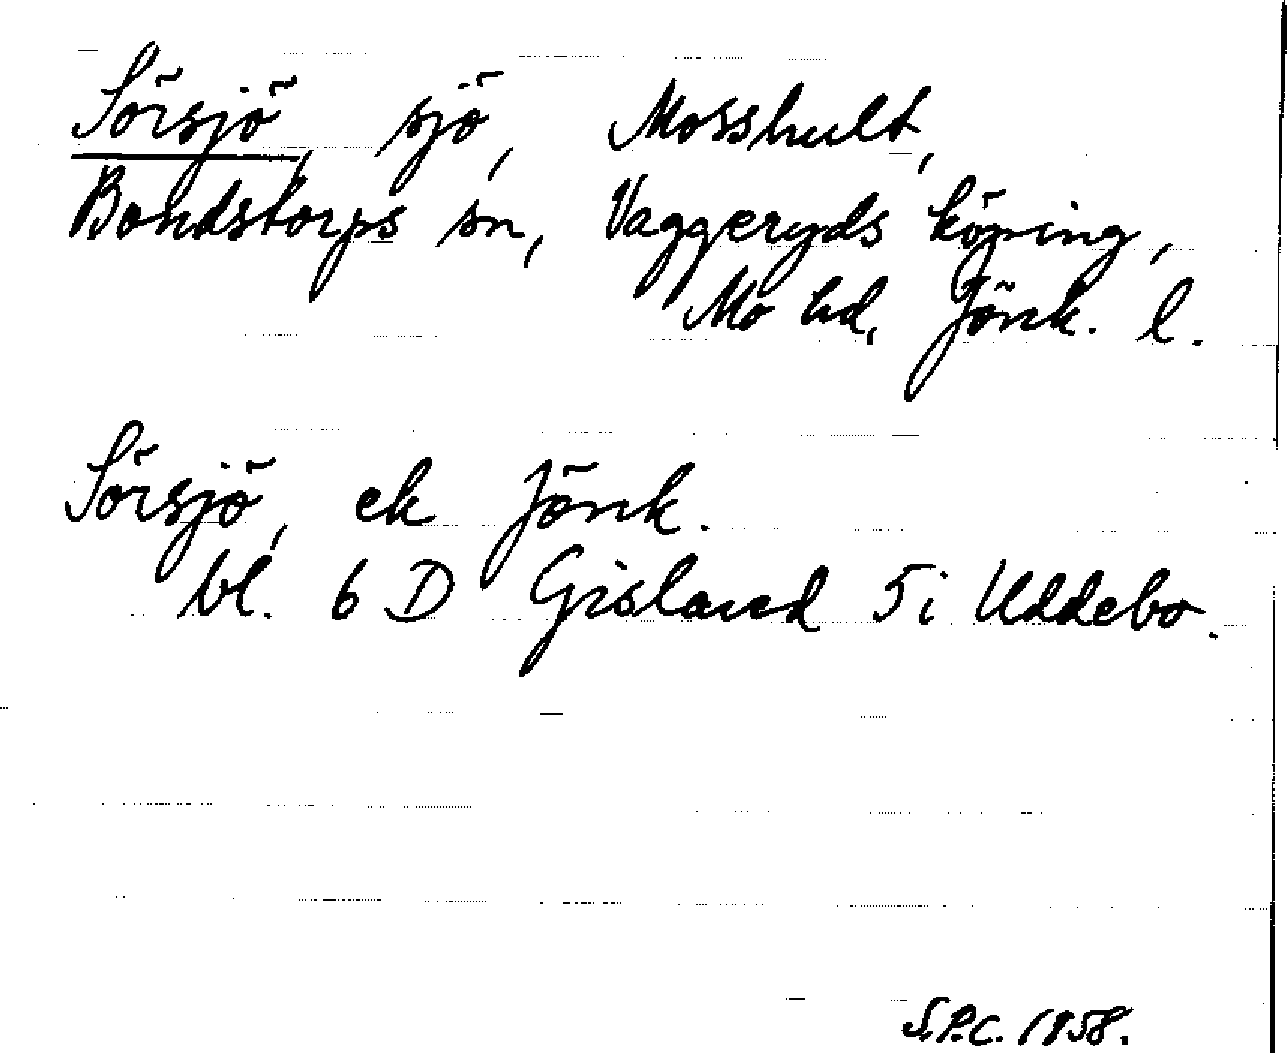 Sörsjö, sjö, Mosshult,
Bondstorps sn, Vaggeryds köping,
Mo hd, Jönk. l.
Sörsjö, ek Jönk.
bl. 6 D Gislaved 5i Uddebo.
S.P.C. 1958.